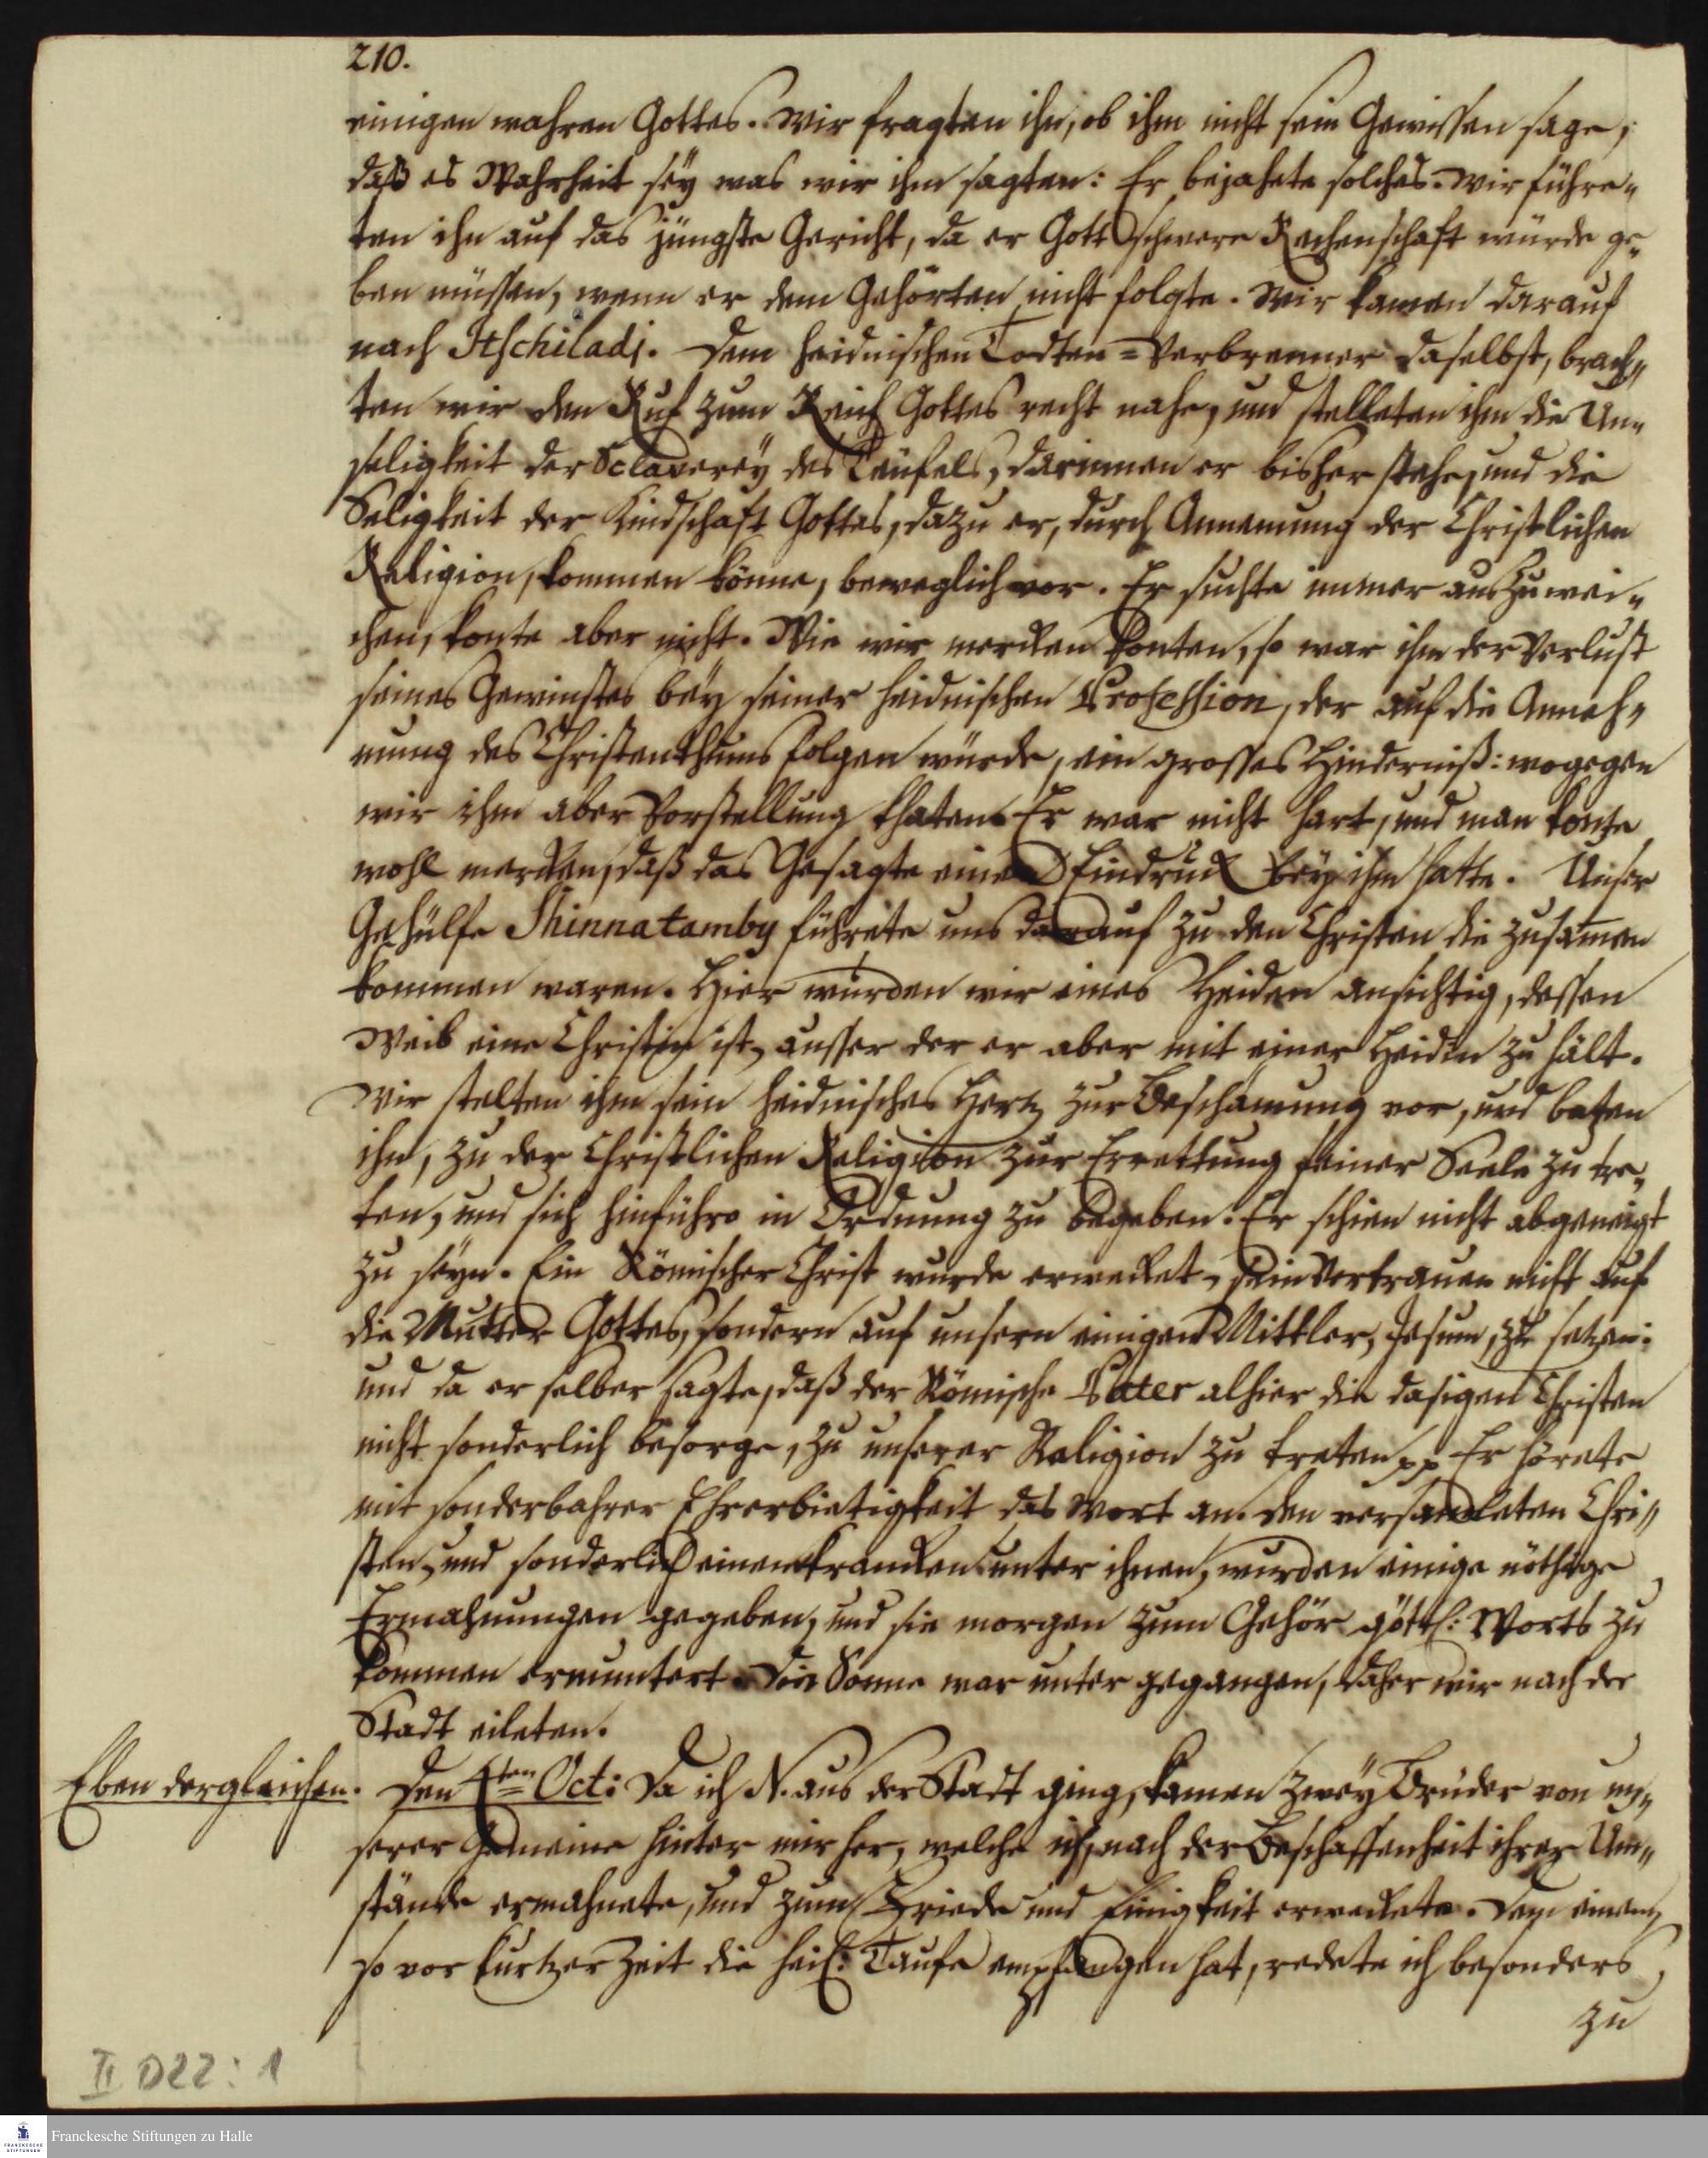 210.
einigen wahren Gottes. Wir fragten ihn, ob ihm nicht sein Gewissen sage,
daß es Wahrheit seÿ was wir ihm sagten: Er bejahete solches. Wir führe„
ten ihn auf das jüngste Gericht, da er Gott schwere Rechenschaft würde ge„
ben müssen, wenn er dem Gehörten nicht folgte. Wir kamen darauf
nach Itschiladi. Dem heidnischen Todten=Verbrenner daselbst, brach„
ten wir den Ruf zum Reich Gottes recht nahe, und stelleten ihm die Un„
seligkeit der Sclavereÿ des Teufels, darinnen er bisher stehe, und die
Seligkeit der Kindschaft Gottes, dazu er, durch Annemung der Christlichen
Religion, kommen könne, beweglich vor. Er suchte immer auszuwei„
chen, konte aber nicht. Wie wir mercken konten, so war ihm der Verlust
seines Gewinstes beÿ seiner heidnischen Profession, der auf die Anneh„
mung des Christenthums folgen würde, ein grosses Hinderniß: wogegen
wir ihm aber Vorstellung thaten. Er war nicht hart, und man konte
wohl mercken, daß das Gesagte einen Eindruck beÿ ihm hatte. Unser
Gehülfe Shinnatamby führete uns darauf zu den Christen die zusam̄en
kommen waren. Hier wurden wir eines Heiden ansichtig, dessen
Weib eine Christin ist, ausser der er aber mit einer Heidin zu hält.
Wir stelten ihm sein heidnisches Hertz zur Beschämung vor, und baten
ihn, zu der Christlichen Religion zur Errettung seiner Seele zu tre„
ten, und sich hinführo in Ordnung zu begeben. Er schien nicht abgeneigt
zu seÿn. Ein Römischer Christ wurde erwecket, sein Vertrauen nicht auf
die Mutter Gottes, sondern auf unsern einigen Mittler, Jesum, zu setzen:
und da er selber sagte, daß der Römische Pater alhier die dasigen Christen
nicht sonderlich besorge, zu unserer Religion zu treten pp Er hörete
mit sonderbahrer Ehrerbietigkeit das Wort an. Den versamleten Chri„
sten, und sonderlich einem krancken unter ihnen, wurden einige nöthige
Ermahnungen gegeben, und sie morgen zum Gehör göttl: Worts zu
kommen ermuntert. Die Sonne war unter gegangen, daher wir nach der
Stadt eileten.
Eben dergleichen. Den 4ten Oct: Da ich N. aus der Stadt ging, kamen zweÿ Brüder von un„
serer Gemeine hinter mir her, welche ich, nach der Beschaffenheit ihrer Um„
stände ermahnete, und zum Friede und Einigkeit erweckete. Dem einen,
so vor kurtzer Zeit die heil: Taufe empfangen hat, redete ich besonders
zu
II D22: 1
Franckesche Stiftungen zu Halle